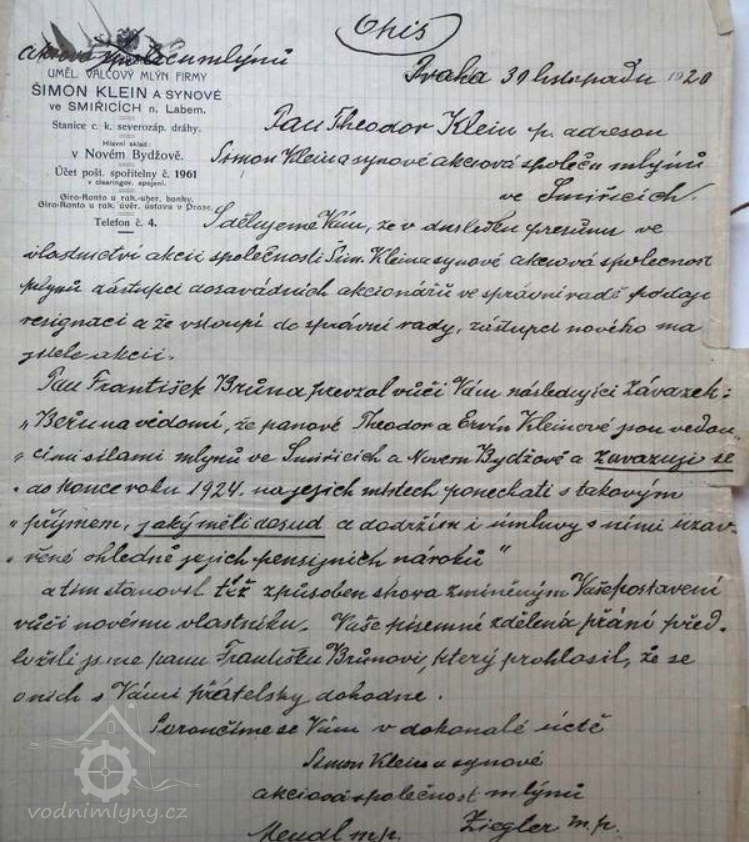 Opis
akciová společ. mlýnů
UMĚL. VÁLCOVÝ MLÝN FIRMY
ŠIMON KLEIN A SYNOVÉ
ve SMIŘICÍCH n. Labem.
Stanice c. k. severozáp. dráhy.
Hlavní sklad:
v Novém Bydžově.
Účet pošt. spořitelny č. 1961
v clearingov. spojení.
Giro-Konto u rak.-uher. banky.
Giro-Konto u rak. úvěr. ústavu v Praze.
Telefon č. 4.
Praha 30 listopadu 1920
Pan Theodor Klein p. adresou
Simon Klein a synové akciová společ. mlýnů
ve Smiřicích.
Sdělujeme Vám, že v důsledku přesunu ve
vlastnictví akcii společnosti Šim. Klein a synové akciová společnost
mlýnů zástupci dosavádních akcionářů ve správní radě podají
resignaci a že vstoupí do správní rady, zástupci nového ma
jitele akcii.
Pan František Brůna převzal vůči Vám následující závazek:
„Beru na vědomí, že panové Theodor a Ervín Kleinové jsou vedou-
„cimi silami mlýnů ve Smiřicích a Novem Bydžově a zavazuji se
„do konce roku 1924. na jejich místech ponechati s takovým
„příjmem, jaký měli dosud a dodržím i úmluvy s nimi uzav-
„řené ohledně jejich pensijních nároků"
a tim stanovil též způsobem shora zmíněným Vaše postavení
vůči novému vlastníku. Vaše písemné zdělená přání před-
ložili jsme panu Františku Brůnovi, který prohlasil, že se
o nich s Vámi přátelsky dohodne.
Poroučíme se Vám v dokonalé úctě
Simon Klein a synové
akciová společnost mlýnů
Mendl m.p. Ziegler m.p.
vodnimlyny.cz